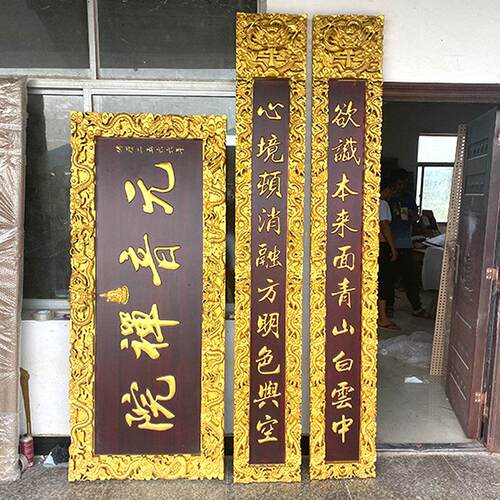 欲識本来面青山白雲中
心境頓消融方明色與空
元音禪院